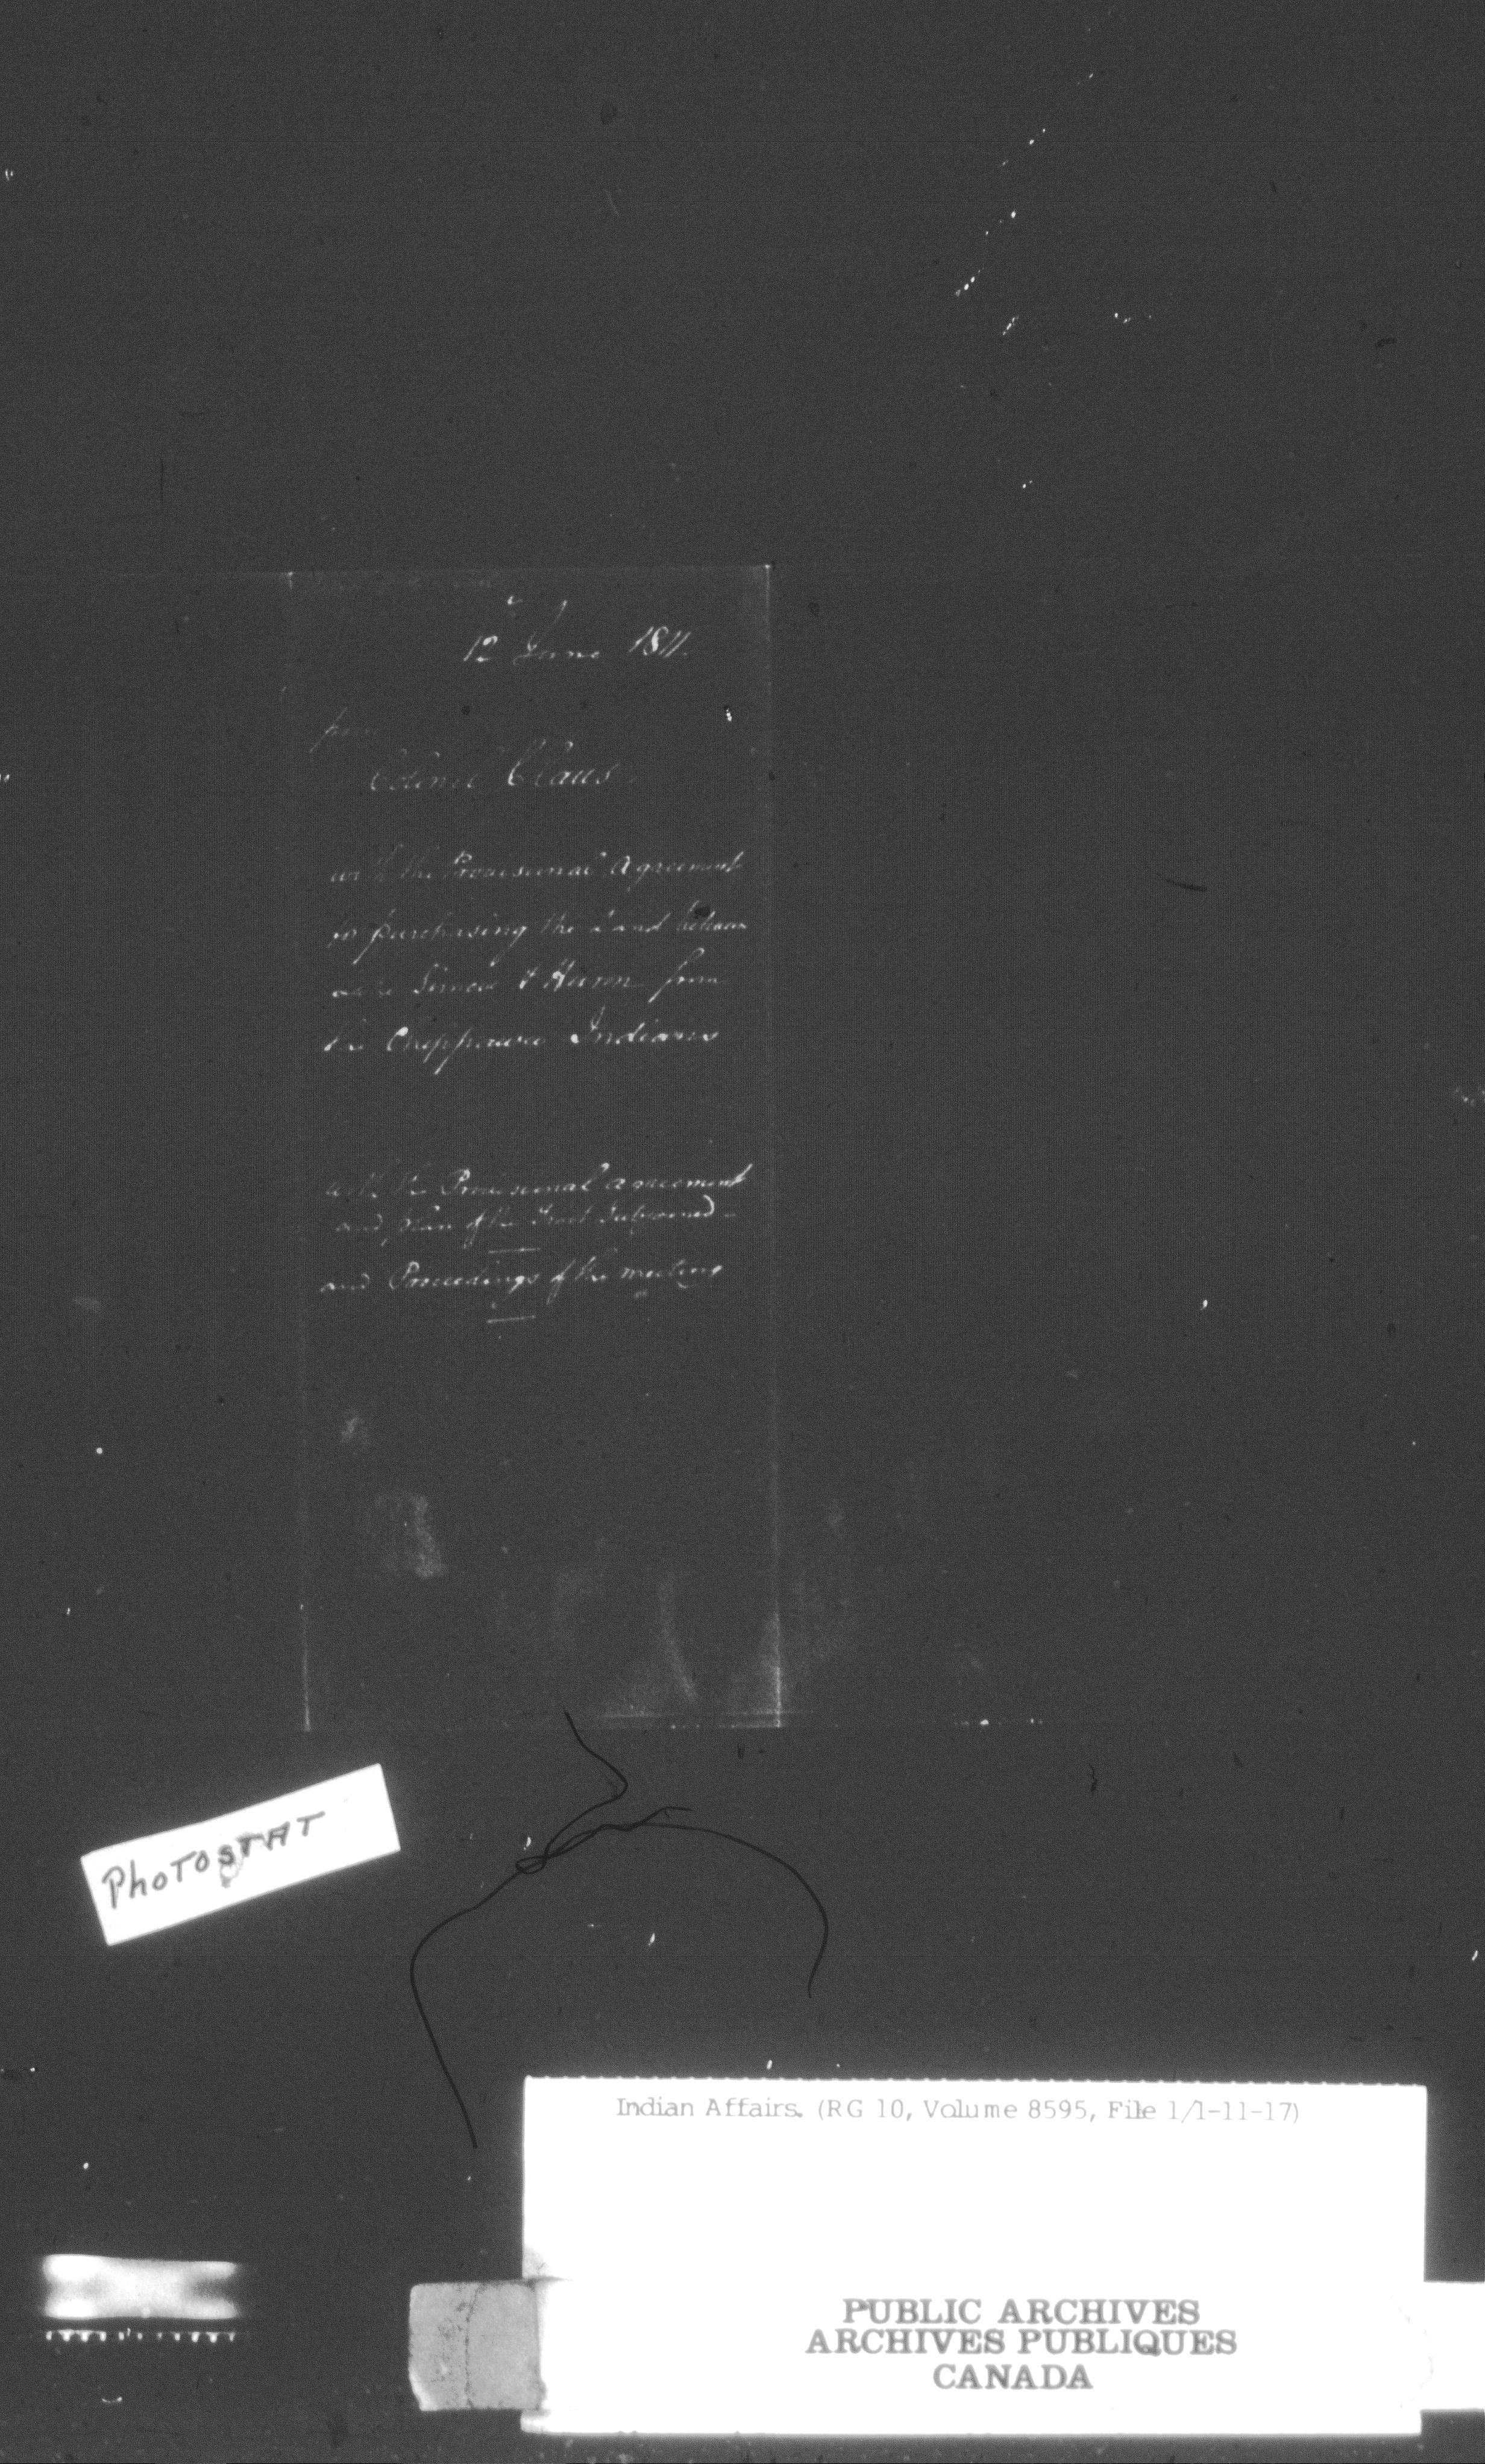 12 June 1811.
from
Colonel Claus
with the Provisional Agreement
for purchasing the Land between
Lake Simcoe & Huron from
the Chippawa Indians
with the Provisional agreement
and plan of the Tract
and Proceedings of the meeting
PhoTOSTAT
Indian Affairs. (RG 10, Volume 8595, File 1/1-11-17)
PUBLIC ARCHIVES
ARCHIVES PUBLIQUES
CANADA